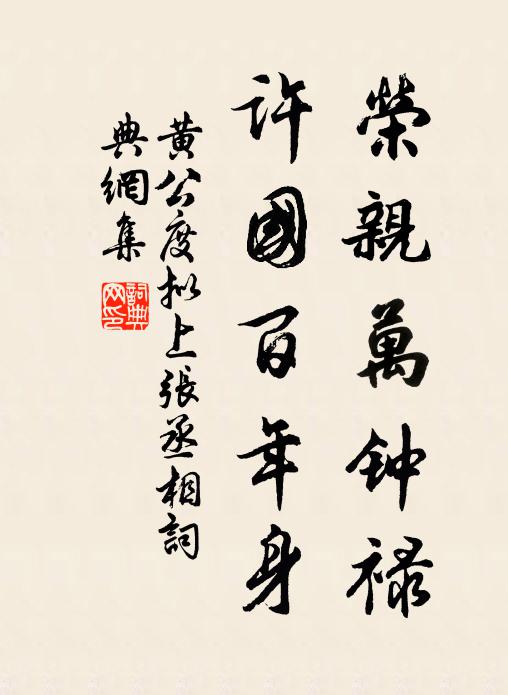 榮親萬钟禄
許國百年身
黄公度拟上張丞相詞
典網集
詞典网印